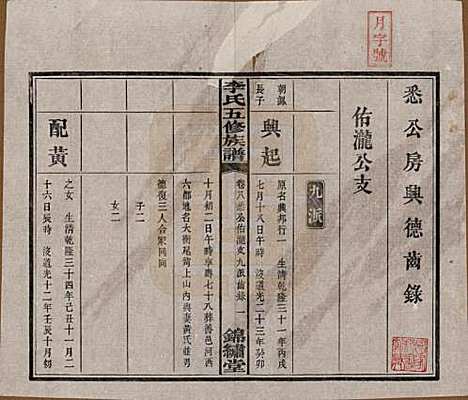 月字號
悉公房興德齒錄
佑瀧公支
九派
朝鳳
長子
興起
原名典邦行一 生清乾隆三十一年丙戌
七月十八日午時 沒道光二十三年癸卯
李氏五修族譜
卷八 悉公佑瀧支九派齒錄 一
錦繡堂
十月初二日午時享壽七十八葬善邑河西
六都地名大衝尾筒上山內與妻黃氏並男
德復三人合冢同向
子二
女二
配黃
之女 生清乾隆三十四年己丑十一月二
十六日辰時 沒道光十二年壬辰十月初